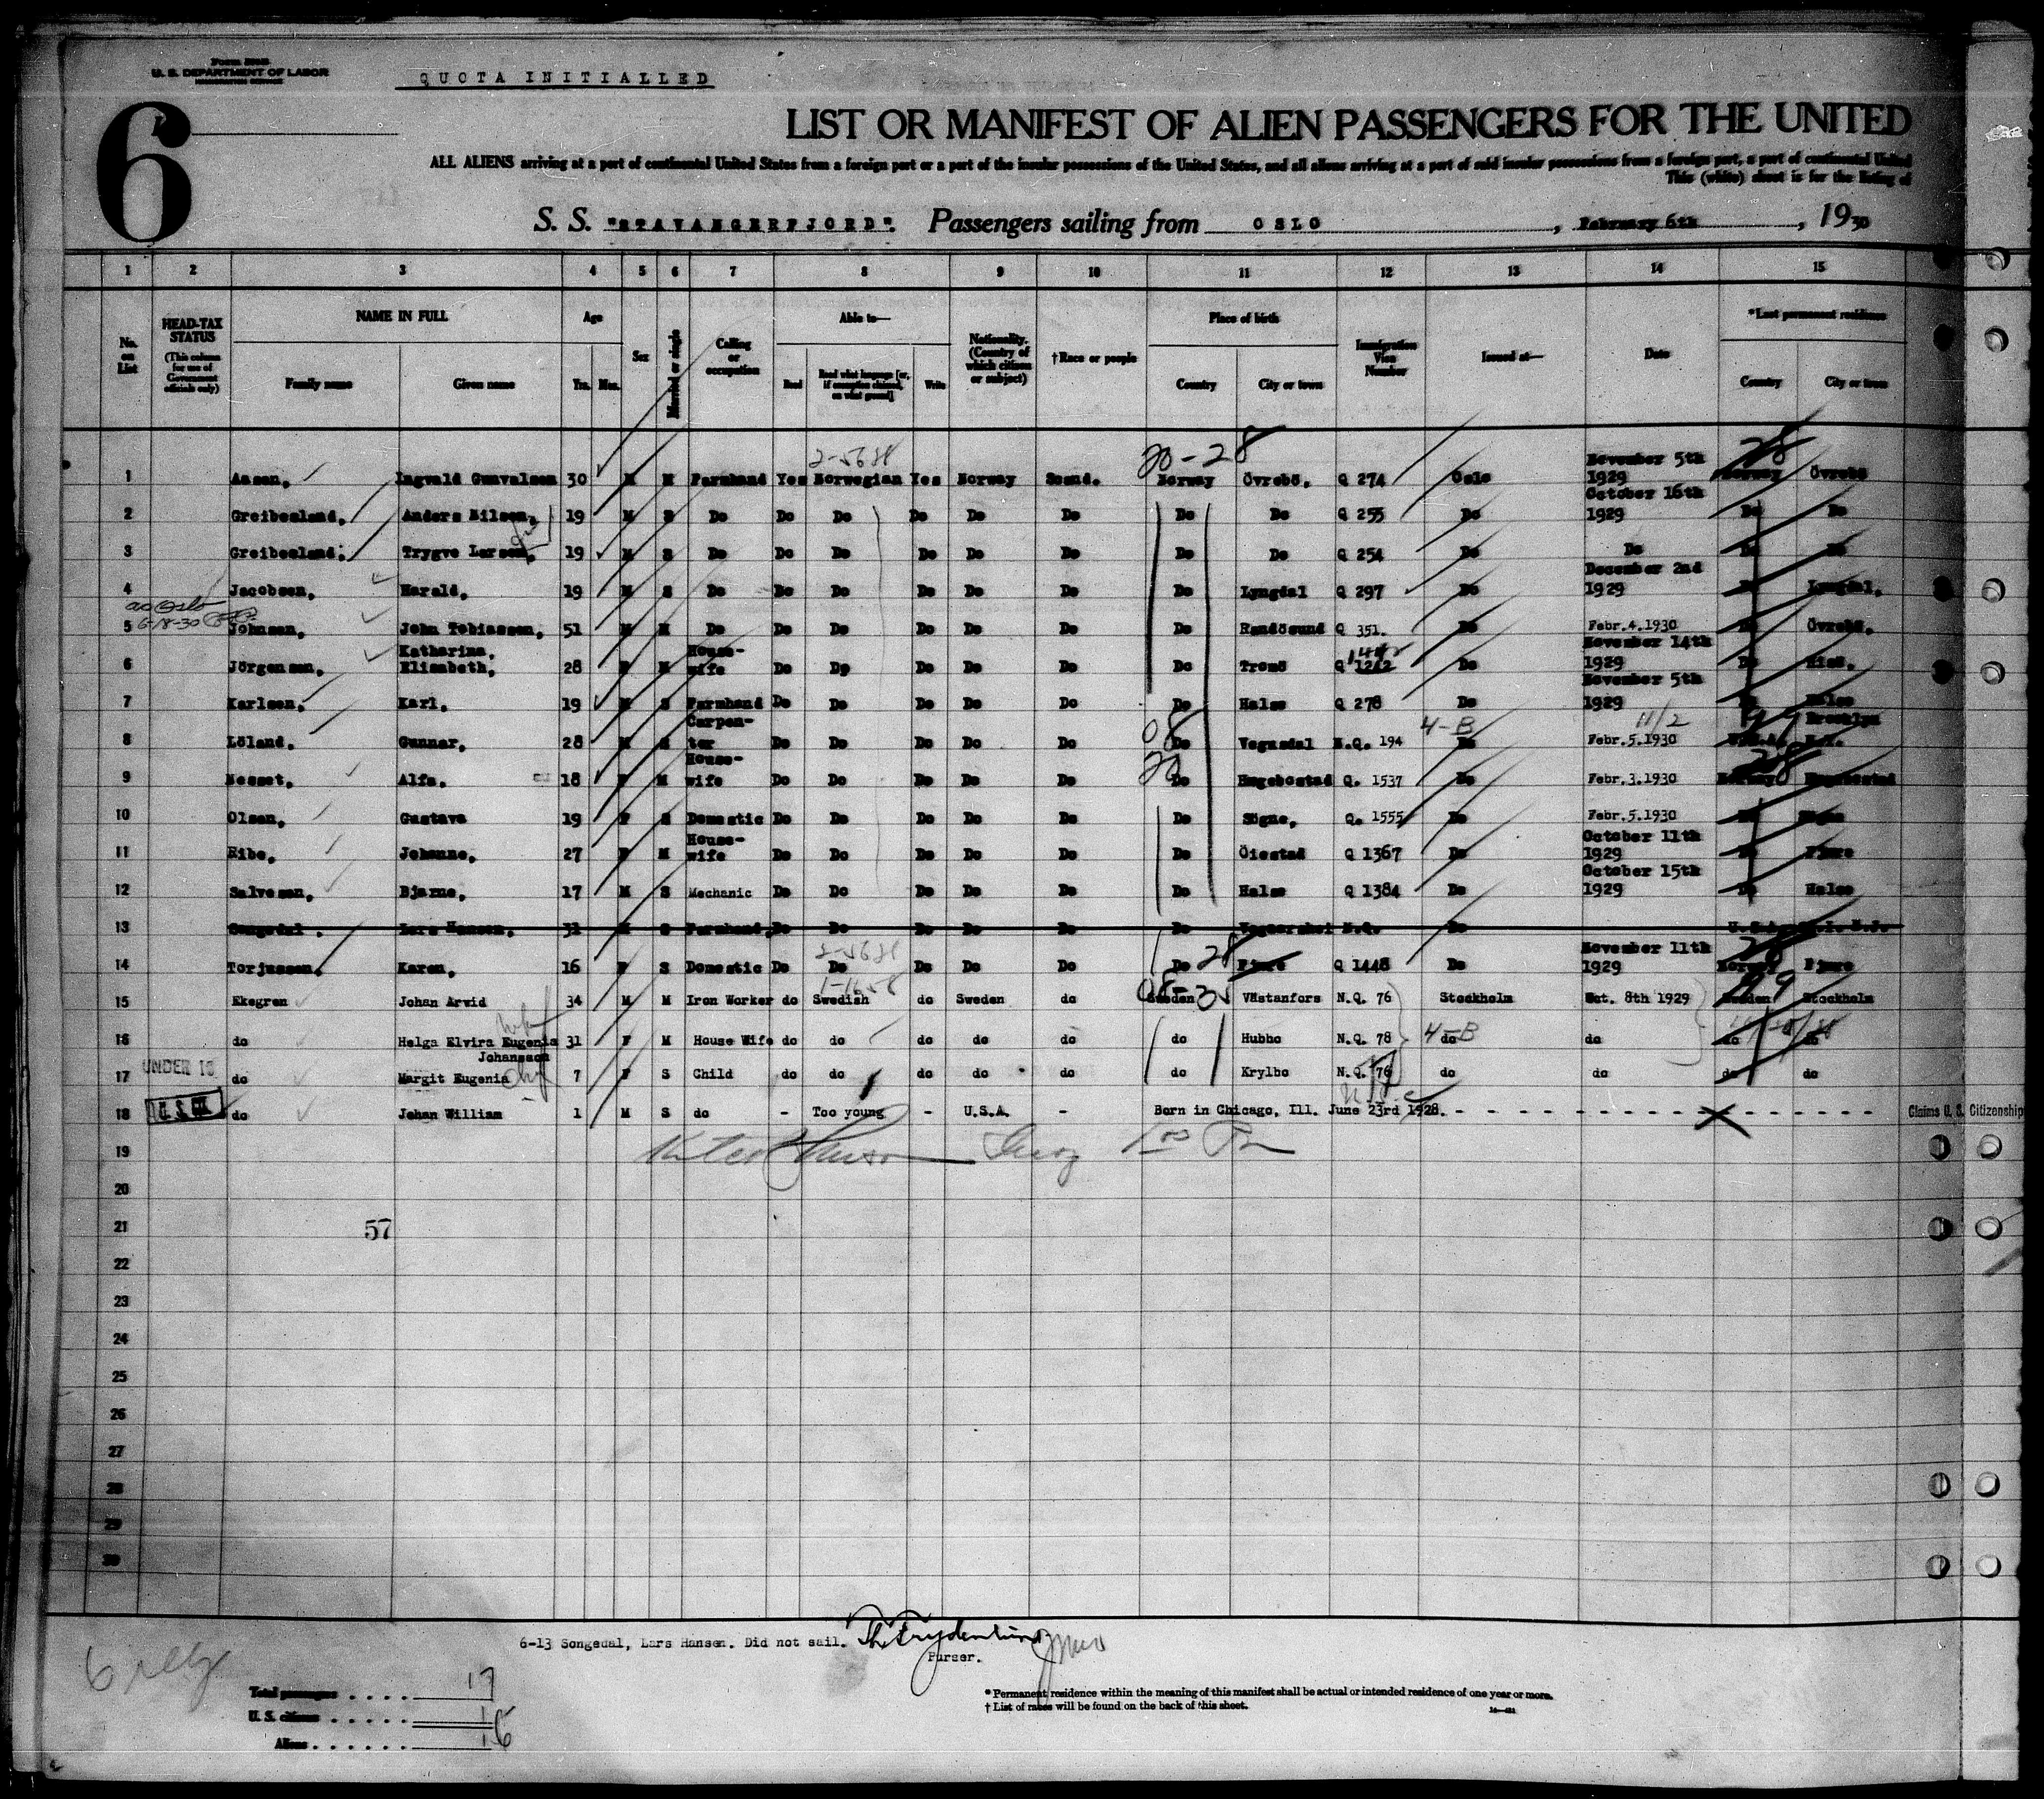 Form 500B
U. S. DEPARTMENT OF LABOR
QUOTA INITIALLED
6
LIST OR MANIFEST OF ALIEN PASSENGERS FOR THE UNITED
ALL ALIENS arriving at a port of continental United States from a foreign port or a port of the insular possessions of the United States, and all aliens arriving at a port of said insular possessions from a foreign port, a port of continental United
This (white) sheet is for the listing of
S. S. "STAVANGERFJORD". Passengers sailing from OSLO, February 6th, 1930
1 2 3 4 5 6 7 8 9 10 11 12 13 14 15
No. on List
HEAD-TAX STATUS (This column for use of Government officials only)
NAME IN FULL
Family name Given name
Age
Yrs. Mos.
Sex
Married or single
Calling or occupation
Able to—
Read Read what language [or, if exemption claimed, on what ground] Write
Nationality. (Country of which citizen or subject)
†Race or people
Place of birth
Country City or town
Immigration Visa Number
Issued at—
Date
*Last permanent residence
Country City or town
20-28 28
1 Aasen, Ingvald Gunvalsen 30 M M Farmhand Yes Norwegian Yes Norway Scand. Norway Övrebö, Q 274 Oslo November 5th 1929 Norway Övrebö
2 Greibesland, Anders Nilsen, 19 M S Do Do Do Do Do Do Do Do Q 255 Do October 16th 1929 Do Do
3 Greibesland, Trygve Larsen, 19 M S Do Do Do Do Do Do Do Do Q 254 Do Do Do Do
4 Jacobsen, Harald, 19 M S Do Do Do Do Do Do Do Lyngdal Q 297 Do December 2nd 1929 Do Lyngdal,
6-18-30
5 Johnsen, John Tobiassen, 51 M M Do Do Do Do Do Do Do Randösund Q 351. Do Febr.4.1930 Do Övrebö,
6 Jörgensen, Katharina, Elisabeth, 28 F M House-wife Do Do Do Do Do Do Tromö Q 1242 Do November 14th 1929 Do
7 Karlsen, Karl, 19 M S Farmhand Do Do Do Do Do Do Halse Q 278 Do November 5th 1929 Do Halse
08 4-B 11/2 99
8 Löland, Gunnar, 28 M S Carpen-ter Do Do Do Do Do Do Vegusdal N.Q. 194 Do Febr.5.1930 U.S.A. Brooklyn N.Y.
20 28
9 Nesset, Alfa, 18 F M House-wife Do Do Do Do Do Do Hægebostad Q. 1537 Do Febr.3.1930 Norway Hægebostad
10 Olsen, Gustava 19 F S Domestic Do Do Do Do Do Do Sögne, Q. 1555 Do Febr.5.1930 Do Sögne
11 Ribe, Johanne, 27 F M House-wife Do Do Do Do Do Do Öiestad Q 1367 Do October 11th 1929 Do Fjære
12 Salvesen, Bjarne, 17 M S Mechanic Do Do Do Do Do Do Halse Q 1384 Do October 15th 1929 Do Halse
13 Songedal, Lars Hansen, 31 M S Farmhand, Do Do Do Do Do Do Vegaarshei N.Q. Do U.S.A.
28 28
14 Torjussen, Karen, 16 F S Domestic Do Do Do Do Do Do Fjære Q 1448 Do November 11th 1929 Norway Fjære
15 Ekegren Johan Arvid 34 M M Iron Worker do Swedish do Sweden do Sweden Västanfors N.Q. 76 Stockholm Oct. 8th 1929 Sweden Stockholm
4-B
16 do Helga Elvira Eugenia Johansson 31 F M House Wife do do do do do do Hubbo N.Q. 78 do do do do
UNDER 16
17 do Margit Eugenia 7 F S Child do do do do do do Krylbo N.Q. 76 do do do do
18 do Johan William 1 M S do - Too young - U.S.A. - Born in Chicago, Ill. June 23rd 1928. Claims U. S. Citizenship
19
20
21 57
22
23
24
25
26
27
28
29
30
6-13 Songedal, Lars Hansen. Did not sail.
Purser.
Total passengers . . . . 17
U. S. citizens . . . . . 1
Aliens . . . . . . 16
* Permanent residence within the meaning of this manifest shall be actual or intended residence of one year or more.
† List of races will be found on the back of this sheet.